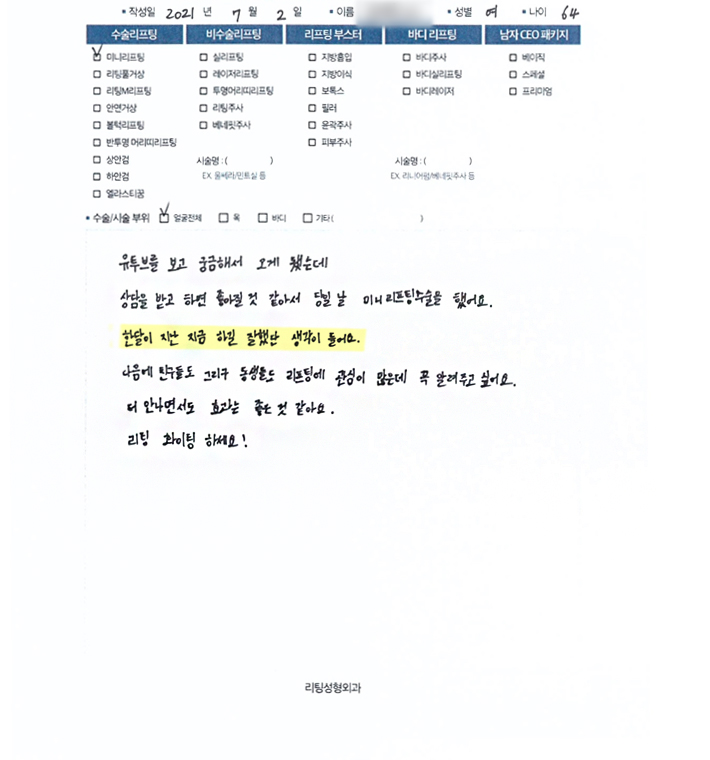 • 작성일 2021 년 7 월 2 일 • 이름 • 성별 여 • 나이 64
수술리프팅 비수술리프팅 리프팅 부스터 바디 리프팅 남자 CEO 패키지
미니리프팅 실리프팅 지방흡입 바디주사 베이직
리팅풀거상 레이저리프팅 지방이식 바디실리프팅 스페셜
리팅M리프팅 투명머리띠리프팅 보톡스 바디레이저 프리미엄
안면거상 리팅주사 필러
볼턱리프팅 베네핏주사 윤곽주사
반투명 머리띠리프팅 피부주사
상안검 시술명 : ( ) 시술명 : ( )
하안검 EX. 울쎄라/민트실 등 EX. 리니어펌/베네핏주사 등
엘라스티꿈
• 수술/시술 부위 얼굴전체 목 바디 기타 ( )
유투브를 보고 궁금해서 오게 됐는데
상담을 받고 하면 좋아질 것 같아서 당일 날 미니리프팅수술을 했어요.
한달이 지난 지금 하길 잘했단 생각이 들어요.
다음에 친구들도 그리구 동생들도 리프팅에 관심이 많은데 꼭 알려주고 싶어요.
티 안나면서도 효과는 좋은 것 같아요.
리팅 화이팅 하세요!
리팅성형외과